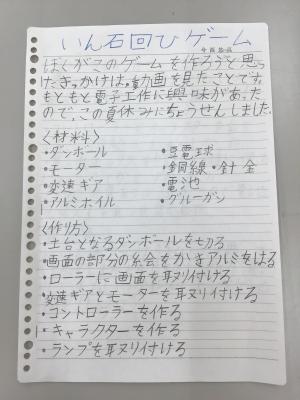 いん石回ひゲーム
ぼくがこのゲームを作ろうと思っ
たきっかけは、動画を見たことです。
もともと電子工作に興味があった
ので、この夏休みにちょうせんしました。
〈材料〉
・ダンボール ・豆電球
・モーター ・銅線・針金
・変速ギア ・電池
・アルミホイル ・グルーガン
〈作り方〉
・土台となるダンボールを切る
・画面の部分の絵をかきアルミをはる
・ローラーに画面を取り付ける
・変速ギアとモーターを取り付ける
・コントローラーを作る
・キャラクターを作る
・ランプを取り付ける